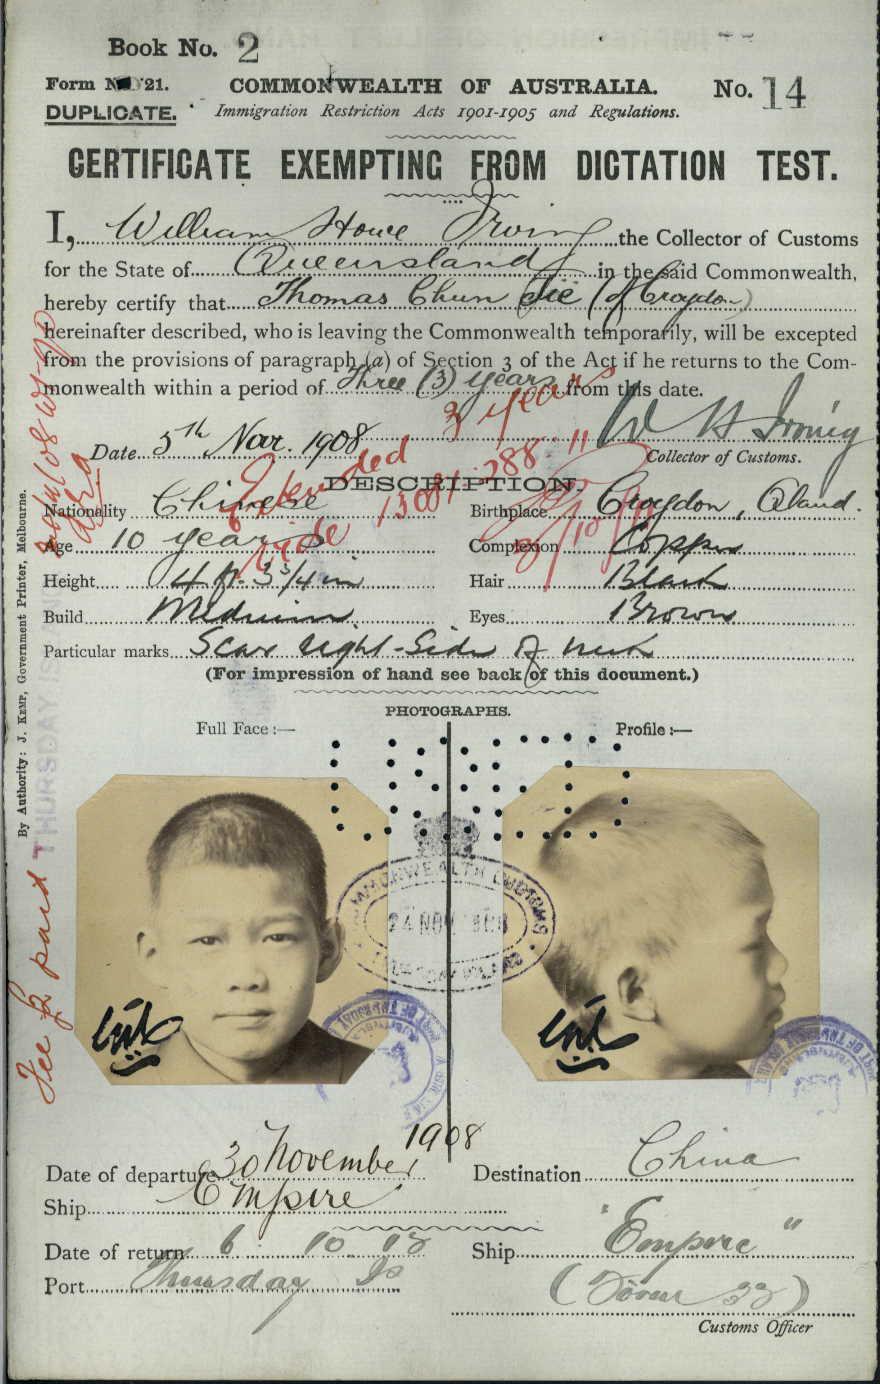 Book No. 2
Form No 21.
COMMONWEALTH OF AUSTRALIA.
No. 14
DUPLICATE.
Immigration Restriction Acts 1901-1905 and Regulations.
CERTIFICATE EXEMPTING FROM DICTATION TEST.
I, William Howe Irving the Collector of Customs
for the State of Queensland in the said Commonwealth,
hereby certify that Thomas Chun Tie (of Croydon)
hereinafter described, who is leaving the Commonwealth temporarily, will be excepted
from the provisions of paragraph (a) of Section 3 of the Act if he returns to the Com-
monwealth within a period of Three (3) years from this date.
3 years
Date 5th Nov. 1908
W H Irving
Collector of Customs.
Extended
vide
DESCRIPTION.
Nationality Chinese
Birthplace Croydon, Qland.
Age 10 years
Complexion Copper
Height 4 ft. 3 3/4 in
Hair Black
Build Medium
Eyes Brown
Particular marks Scar right side of neck
(For impression of hand see back of this document.)
PHOTOGRAPHS.
Full Face :—
Profile :—
COMMONWEALTH CUSTOMS
24 NOV 1908
Date of departure 30 November 1908
Destination China
Ship Empire
Date of return 6 10 13
Ship "Empire"
Port Thursday Is
Customs Officer
By Authority: J. KEMP, Government Printer, Melbourne.
THURSDAY IS
Fee £ paid